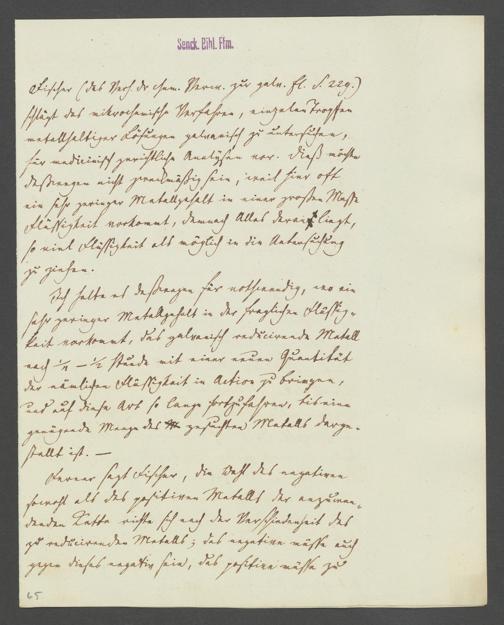 Senck. Bibl. Ffm.
Fischer (das Verh. der chem. Verw. zur galv. El. S. 229.)
schlägt das mikrochemische Verfahren, einzelne Tropfen
metallhaltiger Lösungen galvanisch zu untersuchen,
für medicinisch gerichtliche Analysen vor. Dieß möchte
deßwegen nicht zweckmäßig sein, weil hier oft
ein sehr geringer Metallgehalt in einer großen Masse
Flüssigkeit vorkommt, demnach Alles daran liegt,
so viel Flüssigkeit als möglich in die Untersuchung
zu ziehen.
Ich halte es deßwegen für nothwendig, wo ein
sehr geringer Metallgehalt in der fraglichen Flüssig-
keit vorkommt, das galvanisch reducirende Metall
nach ¼ – ½ Stunde mit einer neuen Quantität
der nämlichen Flüssigkeit in Action zu bringen,
und auf diese Art so lange fortzufahren, bis eine
genügende Menge des gesuchten Metalls darge-
stellt ist. —
Ferner sagt Fischer, die Wahl des negativen
sowohl als des positiven Metalls der anzuwen-
denden Kette richte sich nach der Verschiedenheit des
zu reducirenden Metalls; das negative müsse auch
gegen dieses negativ sein, das positive müsse zu
65